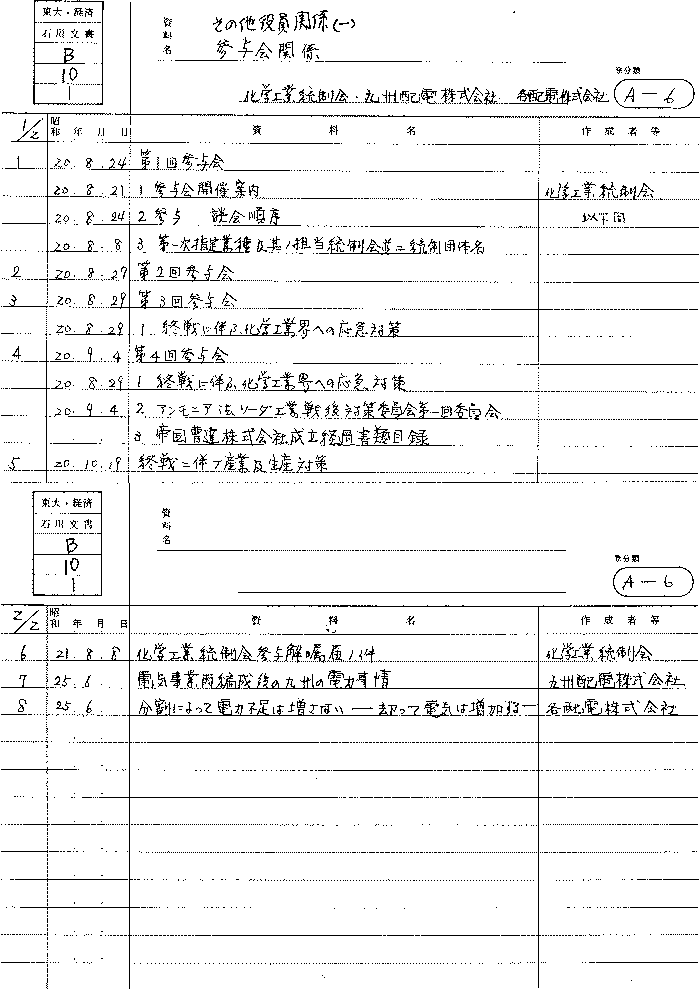 東大・経済
石川文書
B
10
1
資料名
その他役員関係(一)
参与会関係
化学工業統制会・九州配電株式会社 各配電株式会社
景分類
A-6
1/2 昭和 年 月 日 資料名 作成者等
1 20. 8. 24 第1回参与会
20. 8. 21 1 参与会開催案内 化学工業統制会
20. 8. 24 2 参与 談会順序 以下同
20. 8. 8 3 第一次指定業種及其ノ担当統制会並ニ統制団体名
2 20. 8. 27 第2回参与会
3 20. 8. 29 第3回参与会
20. 8. 29 1 終戦に伴ふ化学工業界への応急対策
4 20. 9. 4 第4回参与会
20. 8. 29 1 終戦に伴ふ化学工業界への応急対策
20. 9. 4 2 アンモニア法ソーダ工業戦後対策委員会第一回委員会
3 帝国曹達株式会社成立経過書類目録
5 20. 10. 19 終戦ニ伴フ産業及生産対策
東大・経済
石川文書
B
10
1
資料名
景分類
A-6
2/2 昭和 年 月 日 資料名 作成者等
6 21. 8. 8 化学工業統制会参与解嘱届ノ件 化学工業統制会
7 25. 6. 電気事業再編成後の九州の電力事情 九州配電株式会社
8 25. 6. 分割によって電力不足は増さない—却って電気は増加する— 各配電株式会社